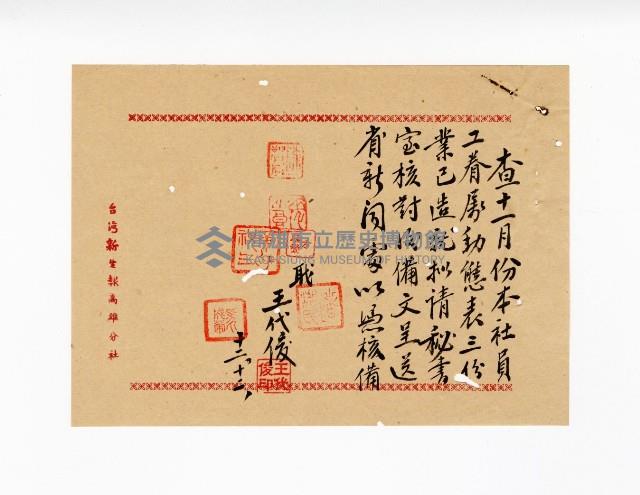 查十一月份本社員
工眷屬動態表三份
業已造完擬請秘書
室核對後備文呈送
省新聞處以憑核備
職
王代俊
十二、十三、
王代
俊印
台灣新生報高雄分社
高雄市立歷史博物館
KAOHSIUNG MUSEUM OF HISTORY